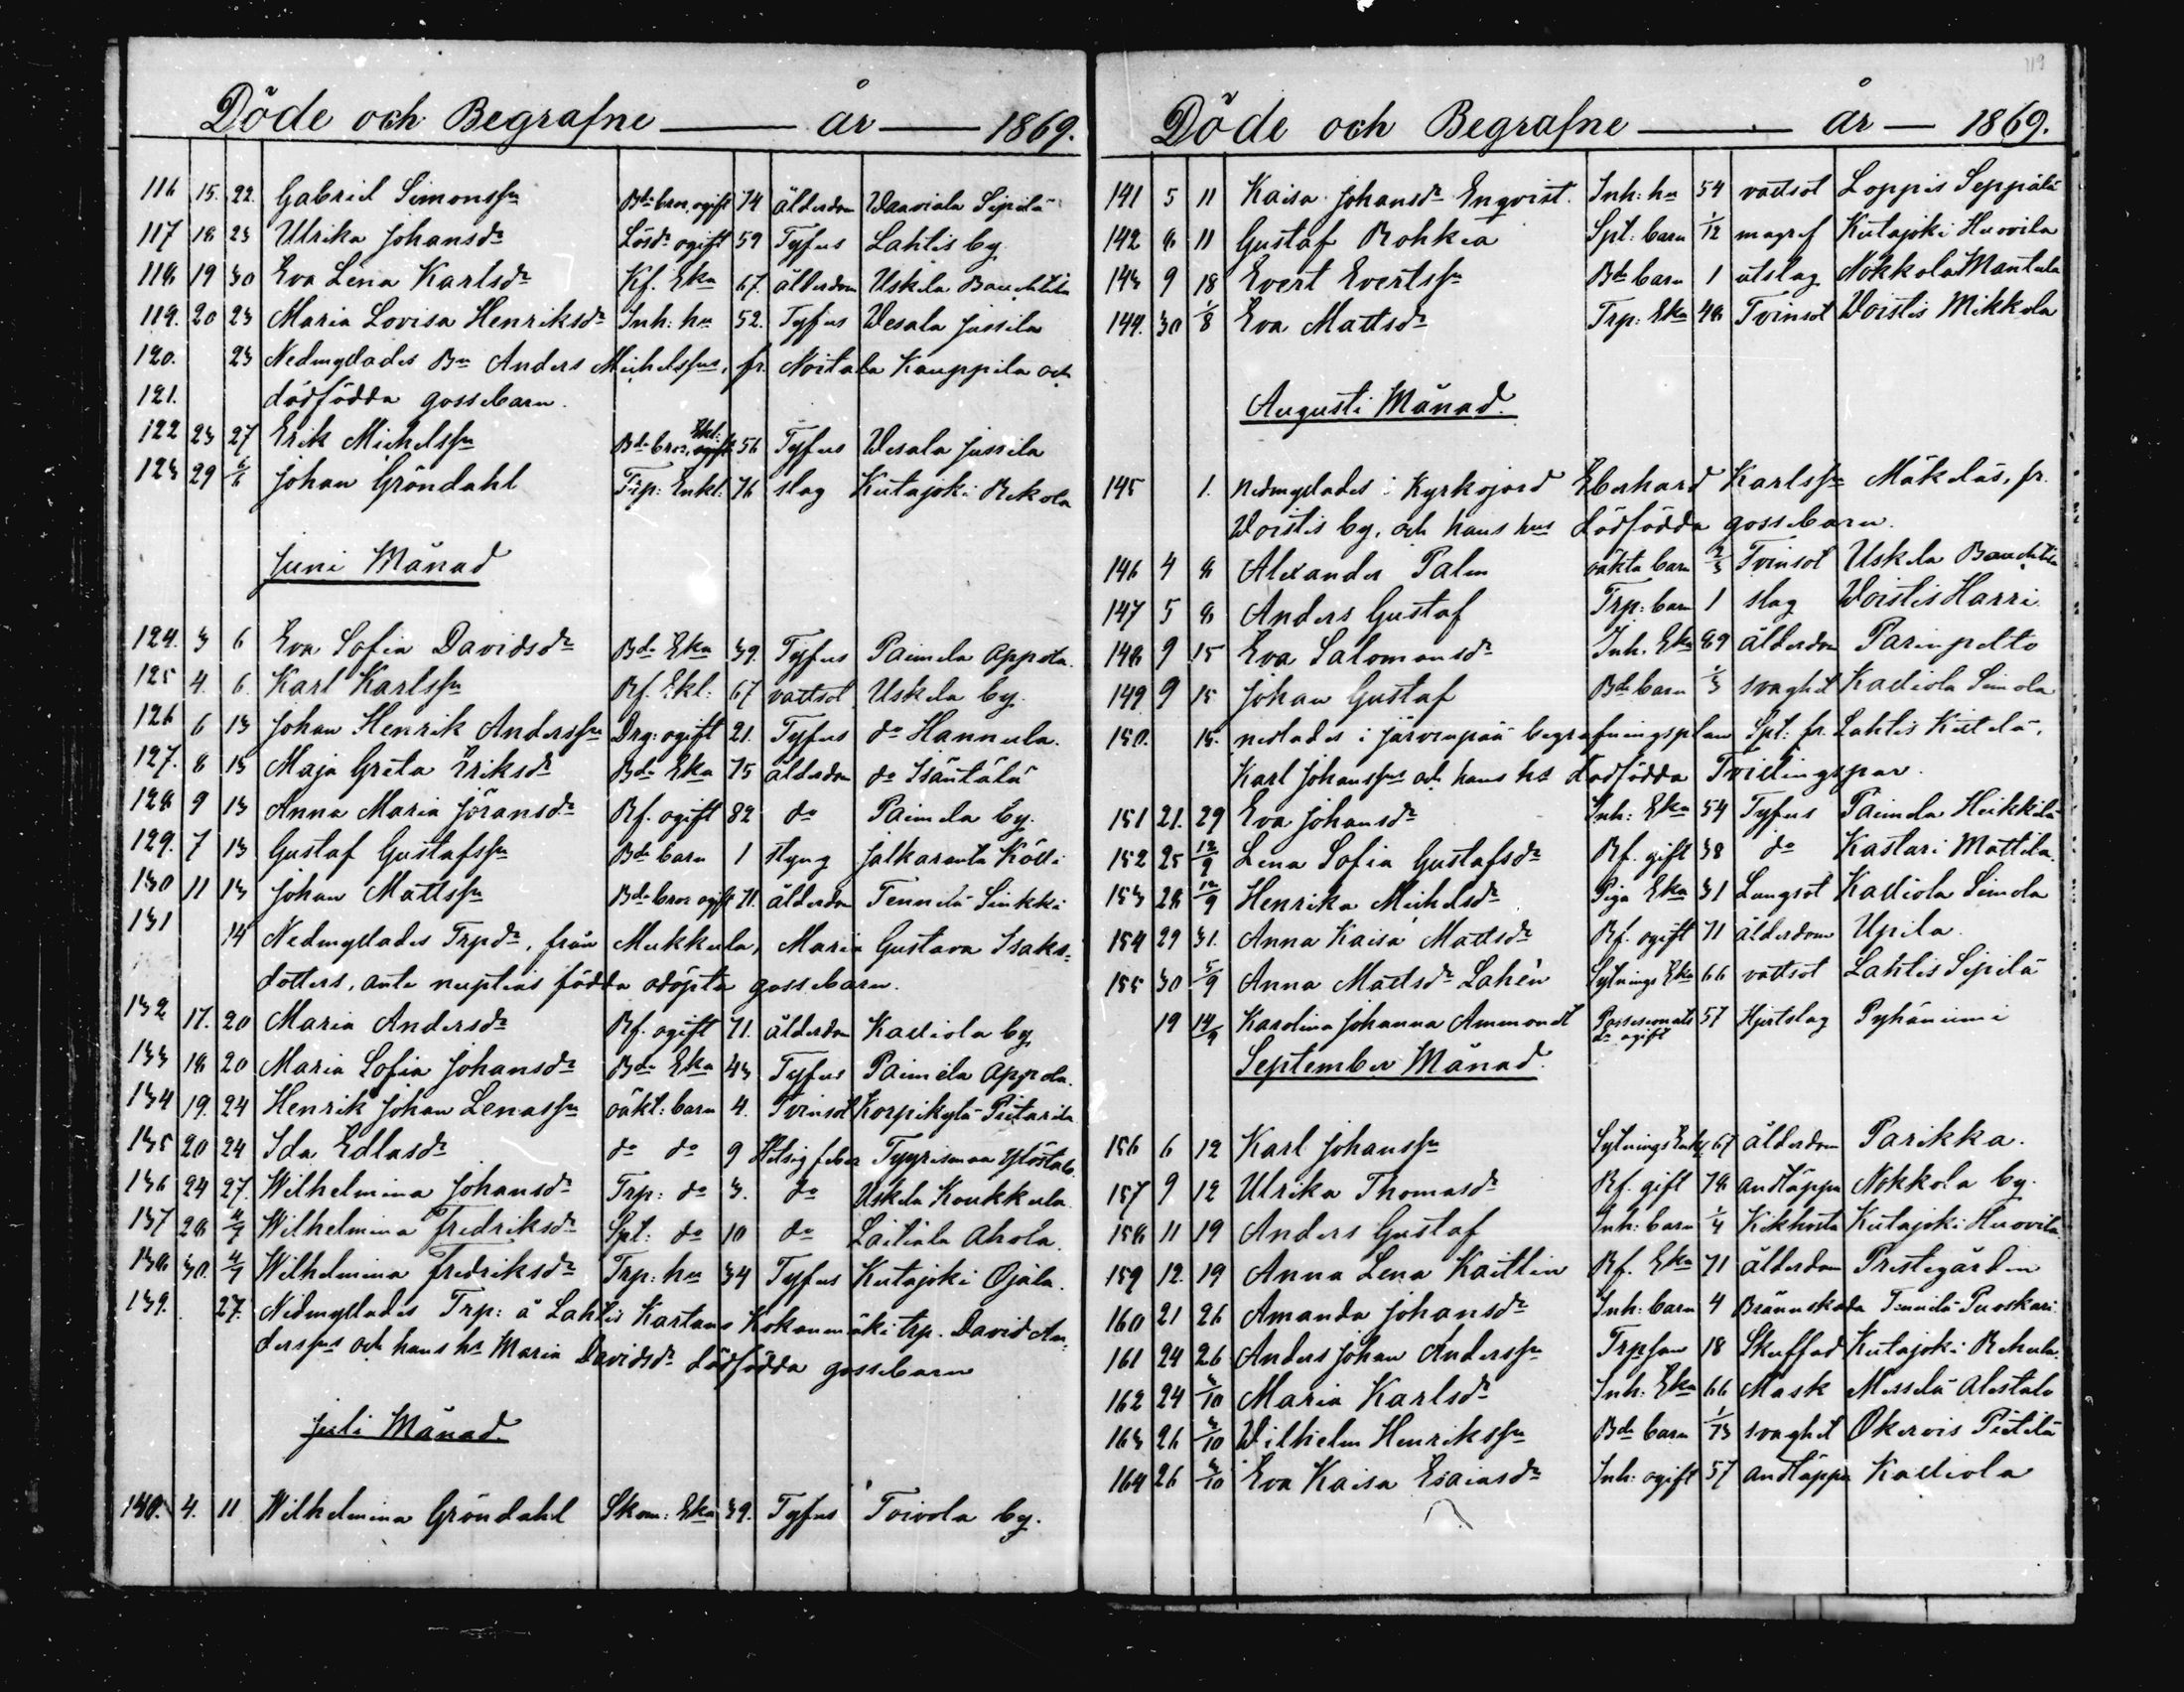 Döde och Begrafne år 1869.
116 15. 22. Gabriel Simonssn Bde bror, ogift 74 ålderdom Waaviala Sipilä
117 18 23 Ulrika Johansdr Lösdr ogift 59 Tyfus Lahtis by
118 19 30 Eva Lena Karlsdr Rf. Eka 67. ålderdom Uskila
119. 20 23 Maria Lovisa Henriksdr Inh: hu 52. Tyfus Wesala Jussila
120. 23 Nedmyllades Bn Anders Michelssns, fr. Noitala Kauppila och
121. dödfödda gossebarn.
122 23 27 Erik Michelssn Bde bror, Ekl: 56 Tyfus Wesala Jussila
123 29 6/6 Johan Gröndahl Trp: Enkl: 76 slag Kutajoki Rekola
Juni Månad
124. 3 6 Eva Sofia Davidsdr Bde Eka 39. Tyfus Paimela Appola.
125 4. 6. Karl Karlssn Rf. Ekl: 67 vattsot Uskila by.
126 6 13 Johan Henrik Anderssn Drg: ogift 21. Tyfus do Hannula.
127. 8 13 Maja Greta Eriksdr Bde Eka 75 ålderdom do Isäntälä
128 9 13 Anna Maria Göransdr Rf. ogift 82 do Paimela by.
129. 7 13 Gustaf Gustafssn Bde barn 1 Jalkaranta Kölli
130 11 13 Johan Mattssn Bde bror ogift 71. ålderdom Tennilä Sinkki
131 14 Nedmyllades Trpdr, från Mukkula, Maria Gustava Isaks-
dotters, ante nuptias födda odöpta gossebarn.
132 17. 20 Maria Andersdr Rf. ogift 71. ålderdom Kaliola by
133 18 20 Maria Sofia Johansdr Bde Eka 43 Tyfus Paimela Appola.
134 19. 24 Henrik Johan Lenassn oäkt: barn 4. Tvinsot Korpikylä Pietarila
135 20 24 Ida Edlasdr do do 9 Hitsig feber Tyyrismaa Ylöstalo
136 24 27. Wilhelmina Johansdr Trp: do 3. do Uskila Koukkula.
137 28 4/7 Wilhelmina Fredriksdr Spt: do 10 do Laitiala Ahola.
138 30. 4/7 Wilhelmina Fredriksdr Trp: hu 34 Tyfus Kutajoki Ojala.
139. 27. Nedmyllades Trp: å Lahtis Kartano Kokonmäki trp. David An-
derssns och hans hu Maria Davidsdr dödfödda gossebarn
Juli Månad
140. 4. 11 Wilhelmina Gröndahl Skom: Eka 39. Tyfus Toivola by.
119
Döde och Begrafne år 1869.
141 5 11 Kaisa Johansdr Enqvist. Inh: hu 54 vattsot Loppis Seppälä
142 8 11 Gustaf Rohkea Spt: barn 1/12 magref Kutajoki Huovila
143 9 18 Evert Evertssn Bde barn 1 utslag Nokkola Mantula
144. 30 1/8 Eva Mattsdr Trp: Eka 48 Tvinsot Woistis Mikkola
Augusti Månad.
145 1. nedmyllades i Kyrkojord Eberhard Karlssn Mäkeläs, fr.
Woistis by, och hans hus dödfödda gossebarn.
146 4 8 Alexander Palm oäkta barn 2/3 Tvinsot Uskila
147 5 8 Anders Gustaf Trp: barn 1 slag Woistis Harri
148 9 15 Eva Salomonsdr Inh. Eka 89 ålderdom Parinpelto
149 9 15 Johan Gustaf Bde barn 1/3 svaghet Kaliola Simola
150. 15. nedlades i Järvenpää begrafningsplan Spt: fr. Lahtis Kietilä,
Karl Johanssns och hans hs dödfödda Tvillingspar.
151 21. 29 Eva Johansdr Inh: Eka 54 Tyfus Paimela Heikkilä
152 25 12/9 Lena Sofia Gustafsdr Rf. gift 38 do Kastari Mattila.
153 28 12/9 Henrika Michelsdr Piga Eka 31 Lungsot Kaliola Simola
154 29 31. Anna Kaisa Mattsdr Rf. ogift 71 ålderdom Upila.
155 30 5/9 Anna Mattsdr Lahén Sytnings Eka 66 vattsot Lahtis Sipilä
19 14/9 Karolina Johanna Ammondt Possessionats dr ogift 57 Hjertslag Pyhäniemi
September Månad.
156 6 12 Karl Johanssn Sytnings Enkl. 67 ålderdom Parikka.
157 9 12 Ulrika Thomasdr Rf. gift 78 andtäppa Nokkola by.
158 11 19 Anders Gustaf Inh: barn 1/4 Kikhosta Kutajoki Huovila
159 12. 19 Anna Lena Kaitlin Rf. Eka 71 ålderdom Prestegården
160 21 26 Amanda Johansdr Inh: barn 4 Brännskada Tennilä Puoskari
161 24 26 Anders Johan Anderssn Trpson 18 Skuffad Kutajoki Rekola.
162 24 3/10 Maria Karlsdr Inh: Eka 66 Mask Messilä Alestalo
163 26 3/10 Wilhelm Henrikssn Bde barn 1/73 svaghet Okerois Pietilä
164 26 3/10 Eva Kaisa Esaiasdr Inh: ogift 57 andtäppa Kaliola